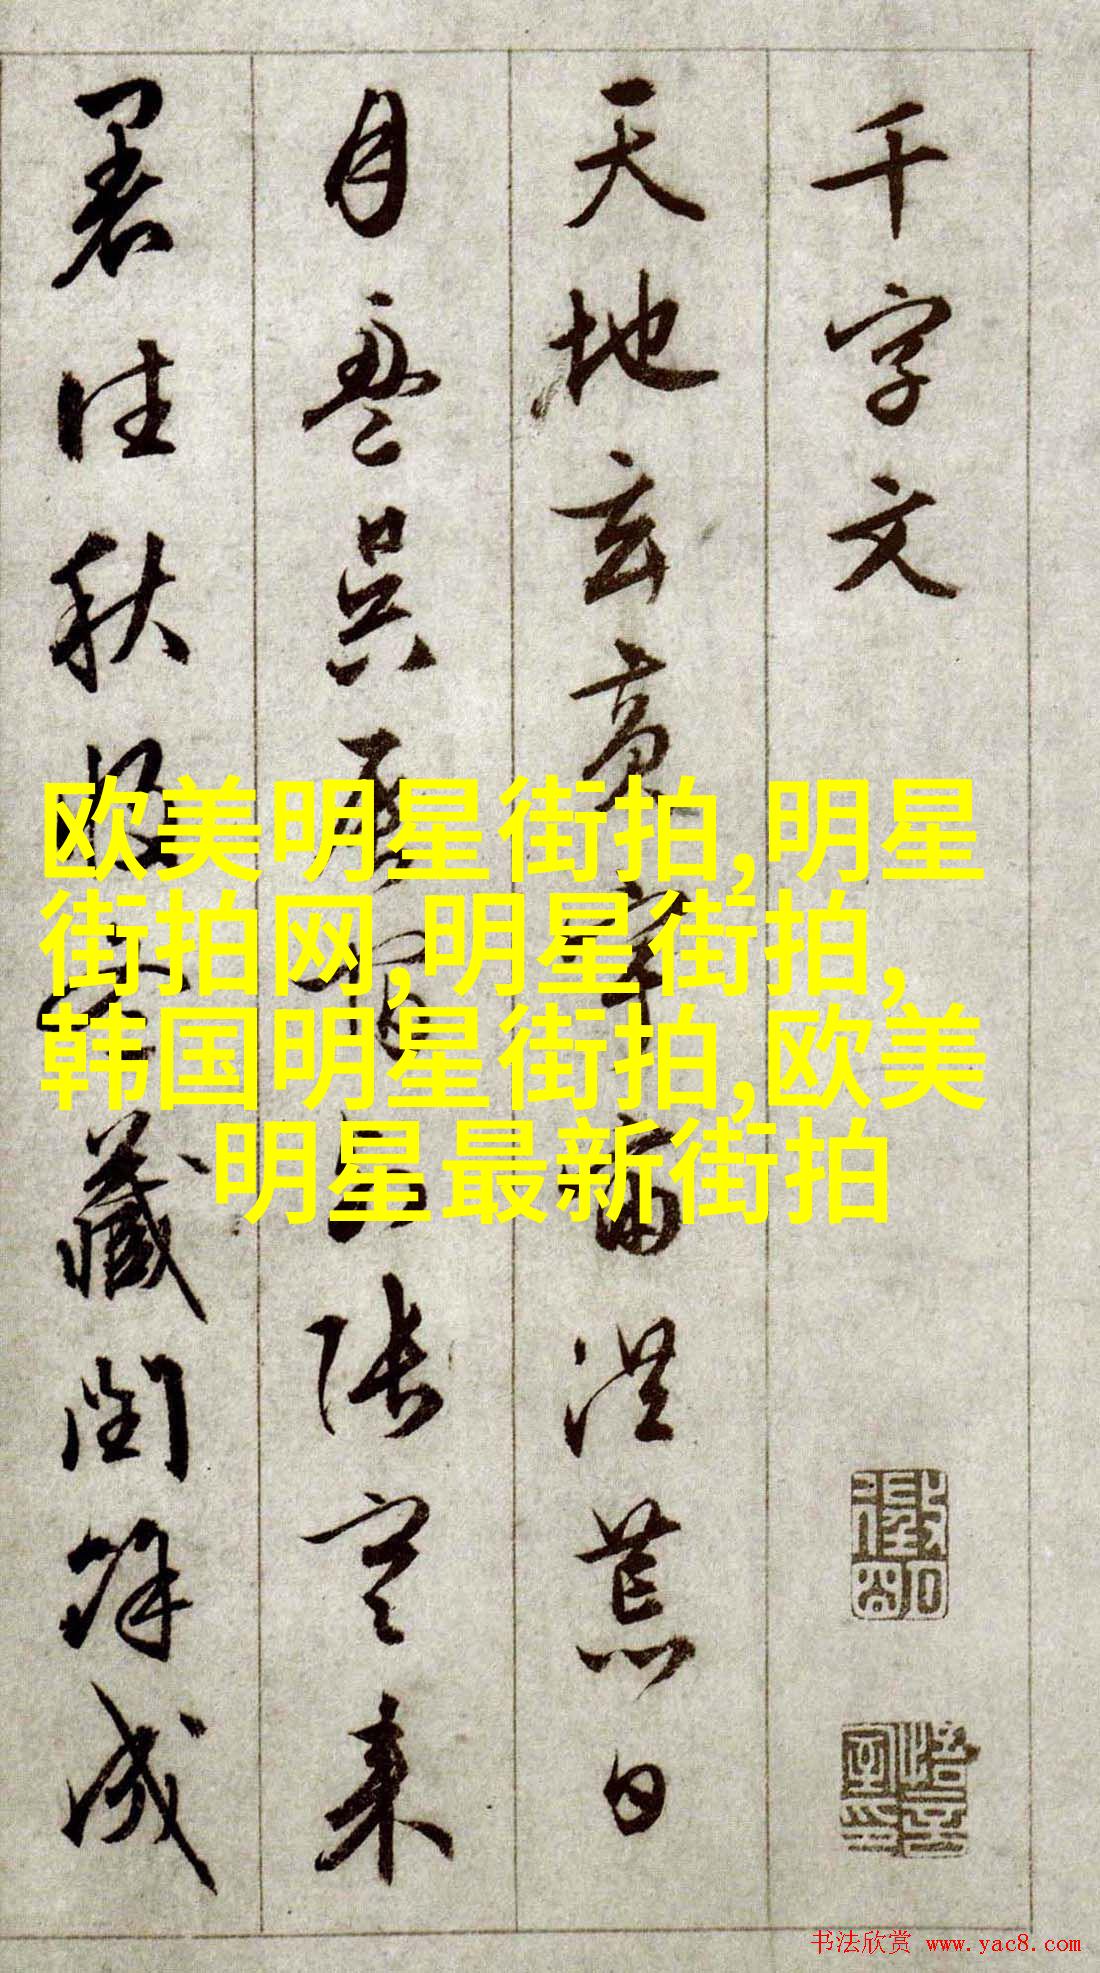 千字文
天地玄黄宇宙洪荒日
月盈昃辰宿列张寒来
暑往秋收冬藏閏餘成
欧美明星街拍,明星
街拍网,明星街拍,
韩国明星街拍,欧美
明星最新街拍
书法欣赏 www.yac8.com